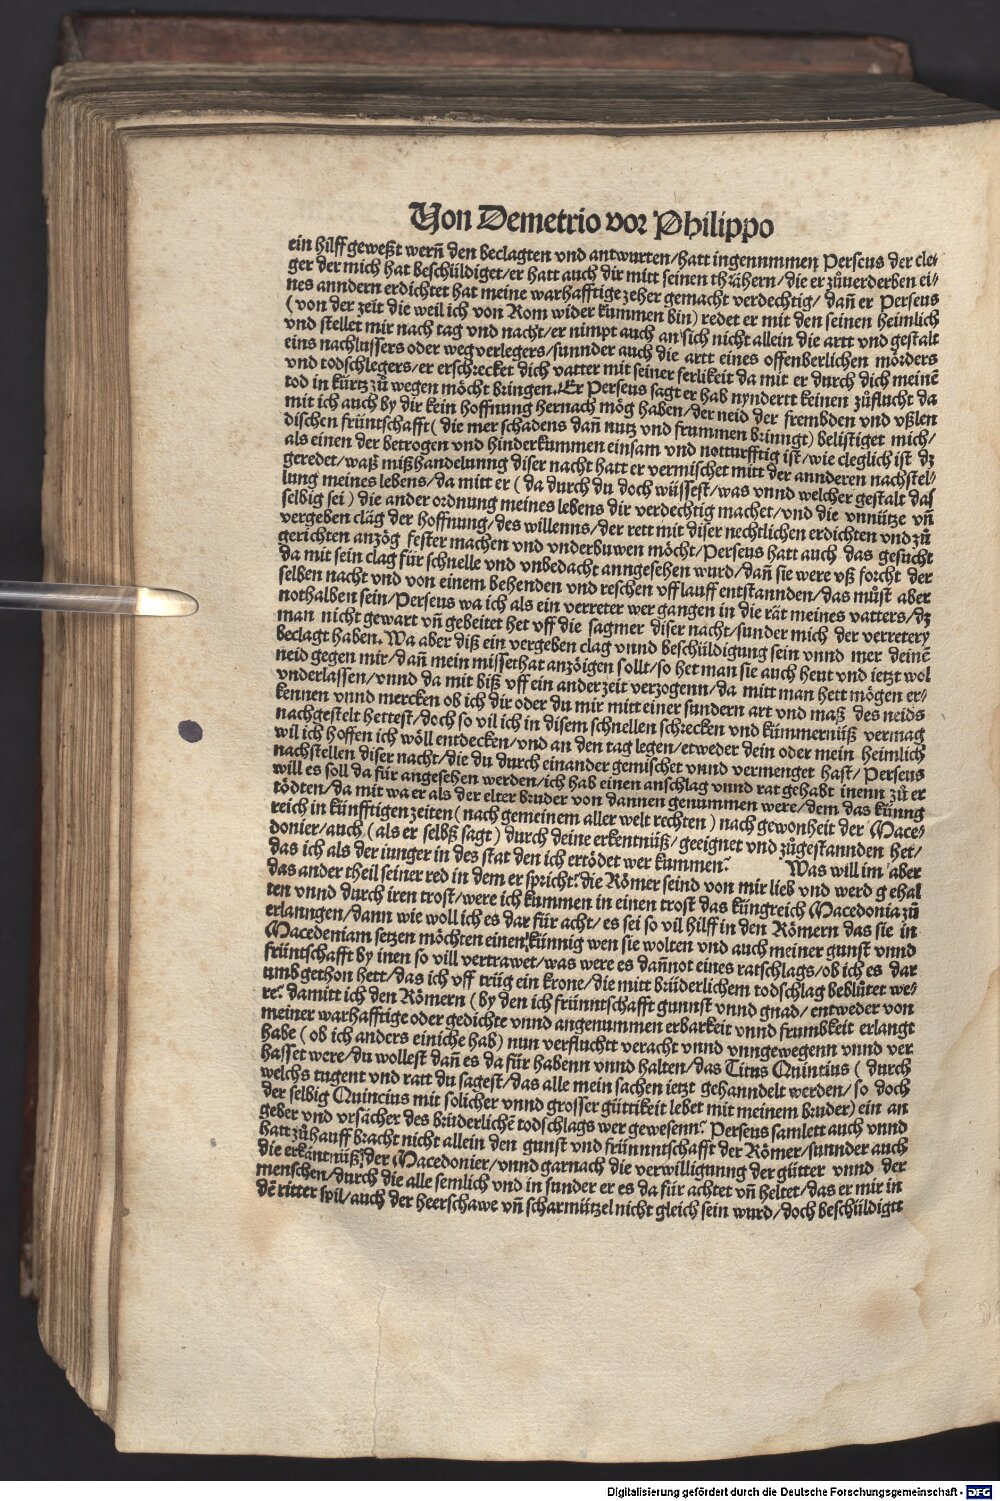 Von Demetrio vor Philippo
ein hilff geweßt wern̄ den beclagten vnd antwurten/hatt ingennmmen Perseus der cle⸗
ger der mich hat beschüldiget/er hatt auch dir mitt seinen thrähern/die er zůuerderben ei⸗
nes anndern erdichtet hat meine warhafftige zeher gemacht verdechtig/ dan̄ er Perseus
(von der zeit die weil ich von Rom wider kummen bin) redet er mit den seinen heimlich
vnd stellet mir nach tag vnd nacht/er nimpt auch an sich nicht allein die artt vnd gestalt
eins nachlussers oder wegverlegers/sunnder auch die artt eines offenberlichen mörders
vnd todschlegers/er erschrecket dich vatter mit seiner ferlikeit da mit er durch dich meinē
tod in kürtz zů wegen möcht bringen. Er Perseus sagt er hab nyndertt keinen zůflucht da
mit ich auch by dir kein hoffnung hernach mög haben/der neid der frembden vnd vßlen
dischen früntschafft (die mer schadens dan̄ nutz vnd frummen bringt) belistiget mich/
als einen der betrogen vnd hinderkummen einsam vnd notturfftig ist/wie cleglich ist dz
geredet/waß mißhandelunng diser nacht hatt er vermischet mitt der annderen nachstel⸗
lung meines lebens/da mitt er (da durch du doch wüssest/was vnnd welcher gestalt das
selbig sei) die ander ordnung meines lebens dir verdechtig machet/vnd die vnnütze vn̄
vergeben cläg der hoffnung/des willenns/der rett mit diser nechtlichen erdichten vnd zů
gerichten anzög fester machen vnd vnderbuwen möcht/Perseus hatt auch das gesucht
da mit sein clag für schnelle vnd vnbedacht anngesehen wurd/dan̄ sie were vß forcht der
selben nacht vnd von einem behenden vnd reschen vfflauff entstannden/das můst aber
nothalben sein/Perseus wa ich als ein verreter wer gangen in die rät meines vatters/dz
man nicht gewart vn̄ gebeitet het vff die sagmer diser nacht/sunder mich der verretery
beclagt haben. Wa aber diß ein vergeben clag vnnd beschüldigung sein vnnd mer deinē
neid gegen mir/dan̄ mein missethat anzöigen sollt/so het man sie auch heut vnd ietzt wol
vnderlassen/vnnd da mit biß vff ein ander zeit verzogenn/da mitt man hett mögen er⸗
kennen vnnd mercken ob ich dir oder du mir mitt einer sundern art vnd maß des neids
nachgestelt hettest/doch so vil ich in disem schnellen schrecken vnd kümmernüß vermag
wil ich hoffen ich wöll entdecken/vnd an den tag legen/etweder dein oder mein heimlich
nachstellen diser nacht/die du durch einander gemischet vnnd vermenget hast/ Perseus
will es soll da für angesehen werden/ich hab einen anschlag vnnd rat gehabt inenn zů er
tödten/da mit wa er als der elter bruder von dannen genummen were/dem das künng
reich in künfftigen zeiten (nach gemeinem aller welt rechten) nach gewonheit der Mace⸗
donier/auch (als er selbß sagt) durch deine erkentnüß/geeignet vnd zůgestannden het/
das ich als der iunger in des stat den ich ertödet wer kummen. Was will im aber
das ander theil seiner red in dem er spricht: die Römer seind von mir lieb vnd werd g ehal
ten vnnd durch iren trost/were ich kummen in einen trost das küngreich Macedonia zů
erlanngen/dann wie woll ich es dar für acht/es sei so vil hilff in den Römern das sie in
Macedeniam setzen möchten einen künnig wen sie wolten vnd auch meiner gunst vnnd
früntschafft by inen so vill vertrawet/was were es dan̄not eines ratschlags/ob ich es dar
umb gethon hett/das ich vff trüg ein krone/die mitt brüderlichem todschlag beblůtet we⸗
re: damitt ich den Römern (by den ich frünntschafft gunnst vnnd gnad/entweder von
meiner warhafftige oder gedichte vnnd angenummen erbarkeit vnnd frumbkeit erlangt
habe (ob ich anders einiche hab) nun verfluchtt veracht vnnd vnngewegenn vnnd ver
hasset were/du wollest dan̄ es da für habenn vnnd halten/das Titus Quintius (durch
welchs tugent vnd ratt du sagest/das alle mein sachen ietzt gehanndelt werden/so doch
der selbig Quincius mit solicher vnnd grosser güttikeit lebet mit meinem bruder) ein an
geber vnd vrsächer des brüderlichē todschlags wer gewesenn: Perseus samlett auch vnnd
hatt zůhauff bracht nicht allein den gunst vnd frünnntschafft der Römer/sunnder auch
die erkäntnüß der Macedonier/vnnd garnach die verwilligunng der gütter vnnd der
menschen/durch die alle semlich vnd in sunder er es da für achtet vn̄ heltet/das er mir in
dē ritter spil/auch der heerschawe vn̄ scharmützel nicht gleich sein wurd/doch beschüldigtt
Digitalisierung gefördert durch die Deutsche Forschungsgemeinschaft - DFG